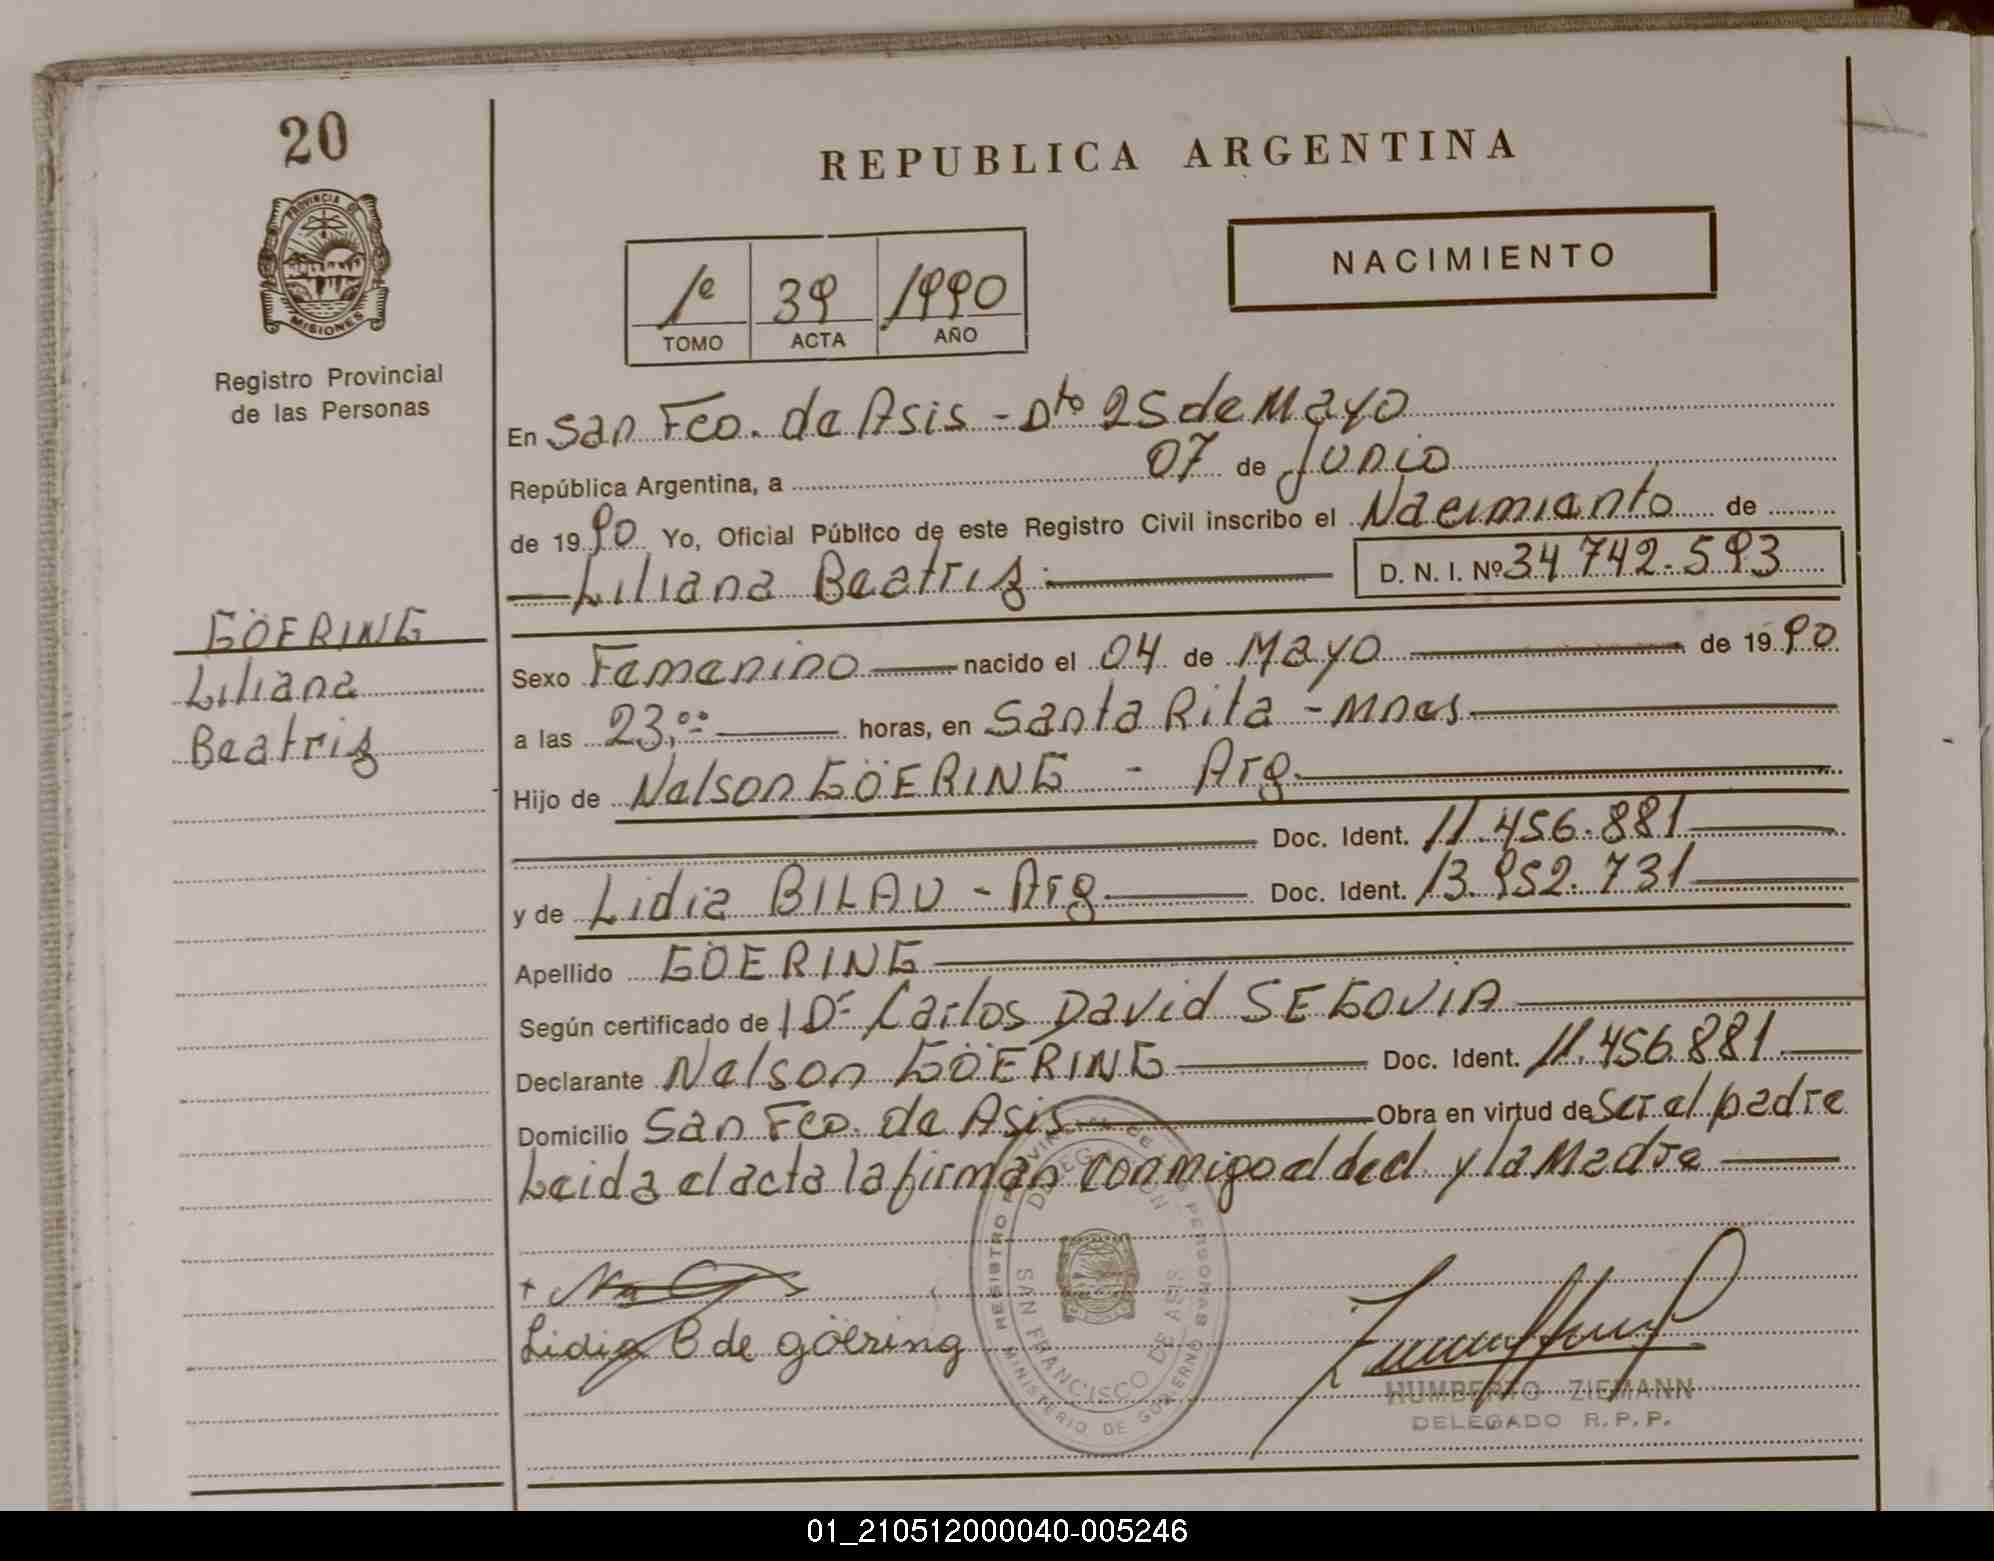 20
PROVINCIA DE
MISIONES
Registro Provincial
de las Personas
GÖERING
Liliana
Beatriz
REPUBLICA ARGENTINA
NACIMIENTO
1º 39 1990
TOMO ACTA AÑO
En San Fco. de Asis - Dto 25 de Mayo
República Argentina, a 07 de Junio
de 1990 Yo, Oficial Público de este Registro Civil inscribo el Nacimianto de
Liliana Beatriz D. N. I. Nº 34 742.593
Sexo Femenino nacido el 04 de Mayo de 1990
a las 23,oo horas, en Santa Rita - Mnes
Hijo de Nelson GÖERING - Arg
Doc. Ident. 11.456.881
y de Lidia BILAU - Arg Doc. Ident. 13.952.731
Apellido GÖERING
Según certificado de Dr Carlos David SEGOVIA
Declarante Nelson GÖERING Doc. Ident. 11.456.881
Domicilio San Fco. de Asis Obra en virtud de ser el padre
Leida el acta la firman conmigo el decl. y la Madre
Lidia B de göering
REGISTRO PROVINCIAL DE LAS PERSONAS
DELEGACION
SAN FRANCISCO DE ASIS
MINISTERIO DE GOBIERNO
HUMBERTO ZIEMANN
DELEGADO R. P. P.
01_210512000040-005246